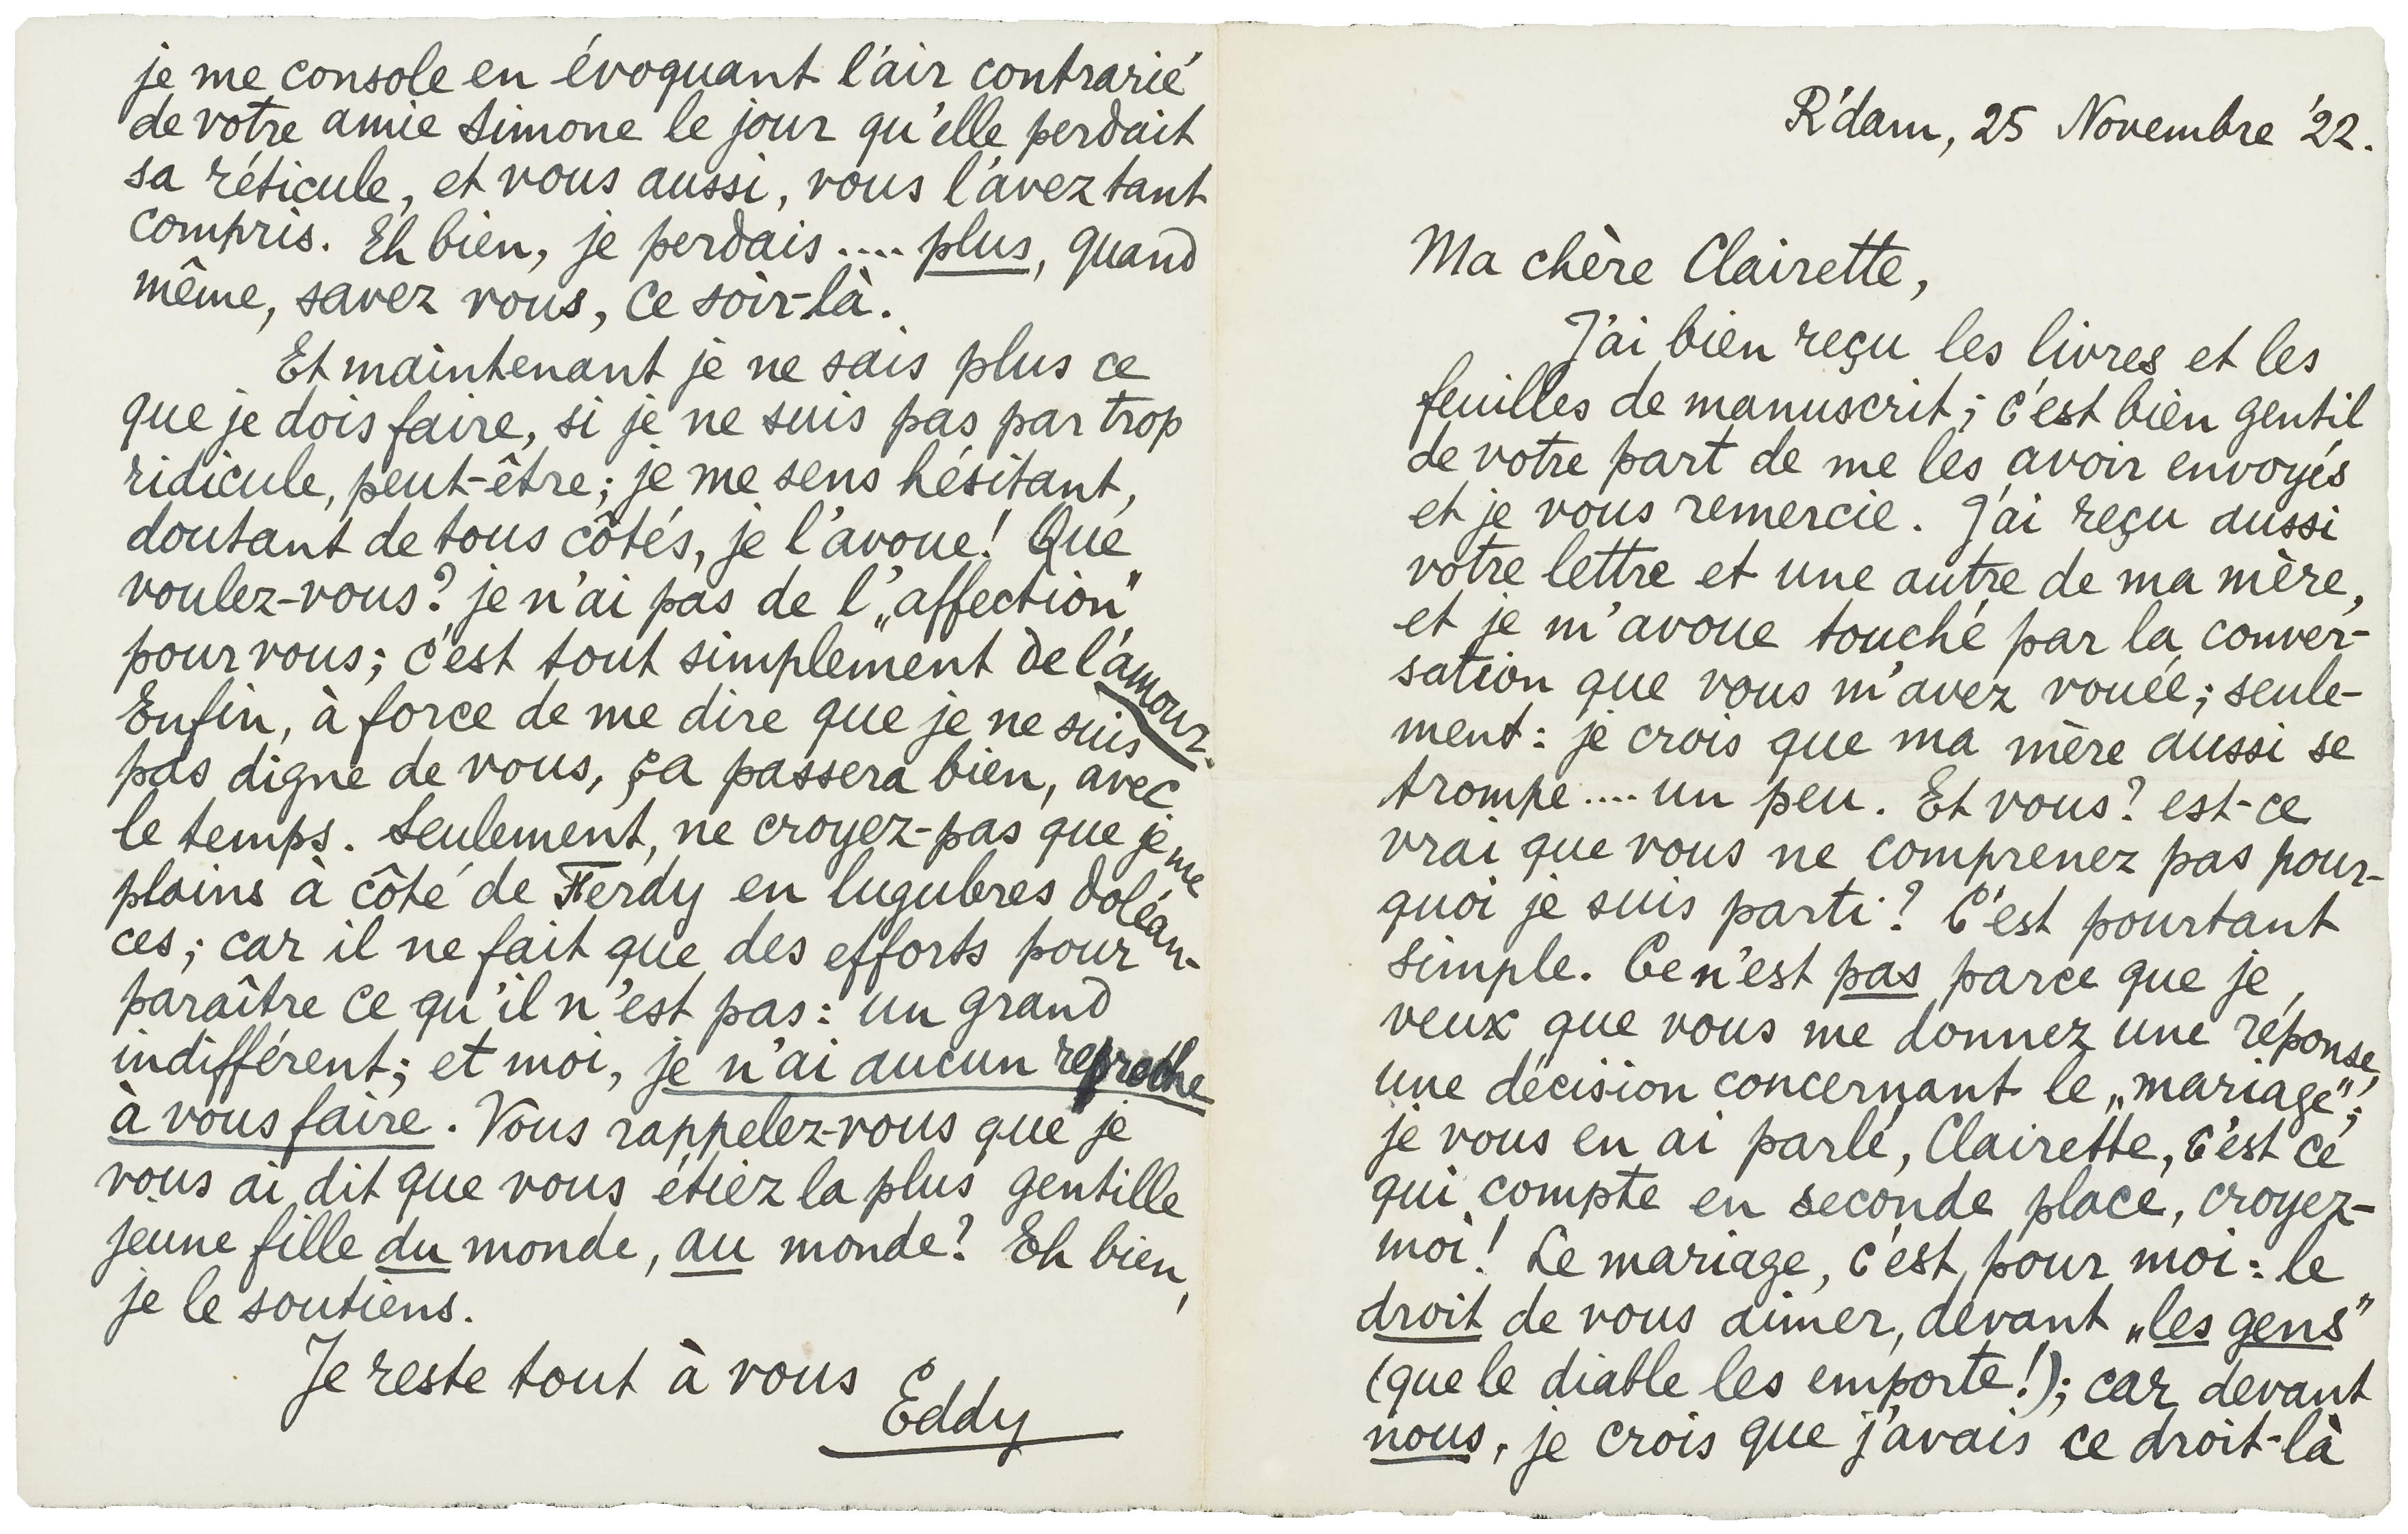 R'dam, 25 Novembre '22.
Ma chère Clairette,
J'ai bien reçu les livres et les
feuilles de manuscrit; c'est bien gentil
de votre part de me les avoir envoyés
et je vous remercie. J'ai reçu aussi
votre lettre et une autre de ma mère,
et je m'avoue touché par la conver-
sation que vous m'avez vouée; seule-
ment: je crois que ma mère aussi se
trompe .... un peu. Et vous? est-ce
vrai que vous ne comprenez pas pour-
quoi je suis parti? C'est pourtant
simple. Ce n'est pas parce que je
veux que vous me donnez une réponse,
une décision concernant le „mariage";
je vous en ai parlé, Clairette, c'est ce
qui compte en seconde place, croyez-
moi! Le mariage, c'est, pour moi: le
droit de vous aimer, devant „les gens"
(que le diable les emporte!); car devant
nous, je crois que j'avais ce droit-là
je me console en évoquant l'air contrarié
de votre amie Simone le jour qu'elle perdait
sa réticule, et vous aussi, vous l'avez tant
compris. Eh bien, je perdais .... plus, quand
même, savez vous, ce soir-là.
Et maintenant je ne sais plus ce
que je dois faire, si je ne suis pas par trop
ridicule, peut-être; je me sens hésitant,
doutant de tous côtés, je l'avoue! Que
voulez-vous? je n'ai pas de l'„affection"
pour vous; c'est tout simplement de l'amour.
Enfin, à force de me dire que je ne suis
pas digne de vous, ça passera bien, avec
le temps. Seulement, ne croyez-pas que je me
plains à côté de Ferdy en lugubres doléan-
ces; car il ne fait que des efforts pour
paraître ce qu'il n'est pas: un grand
indifférent; et moi, je n'ai aucun reproche
à vous faire. Vous rappelez-vous que je
vous ai dit que vous étiez la plus gentille
jeune fille du monde, au monde? Eh bien,
je le soutiens.
Je reste tout à vous
Eddy